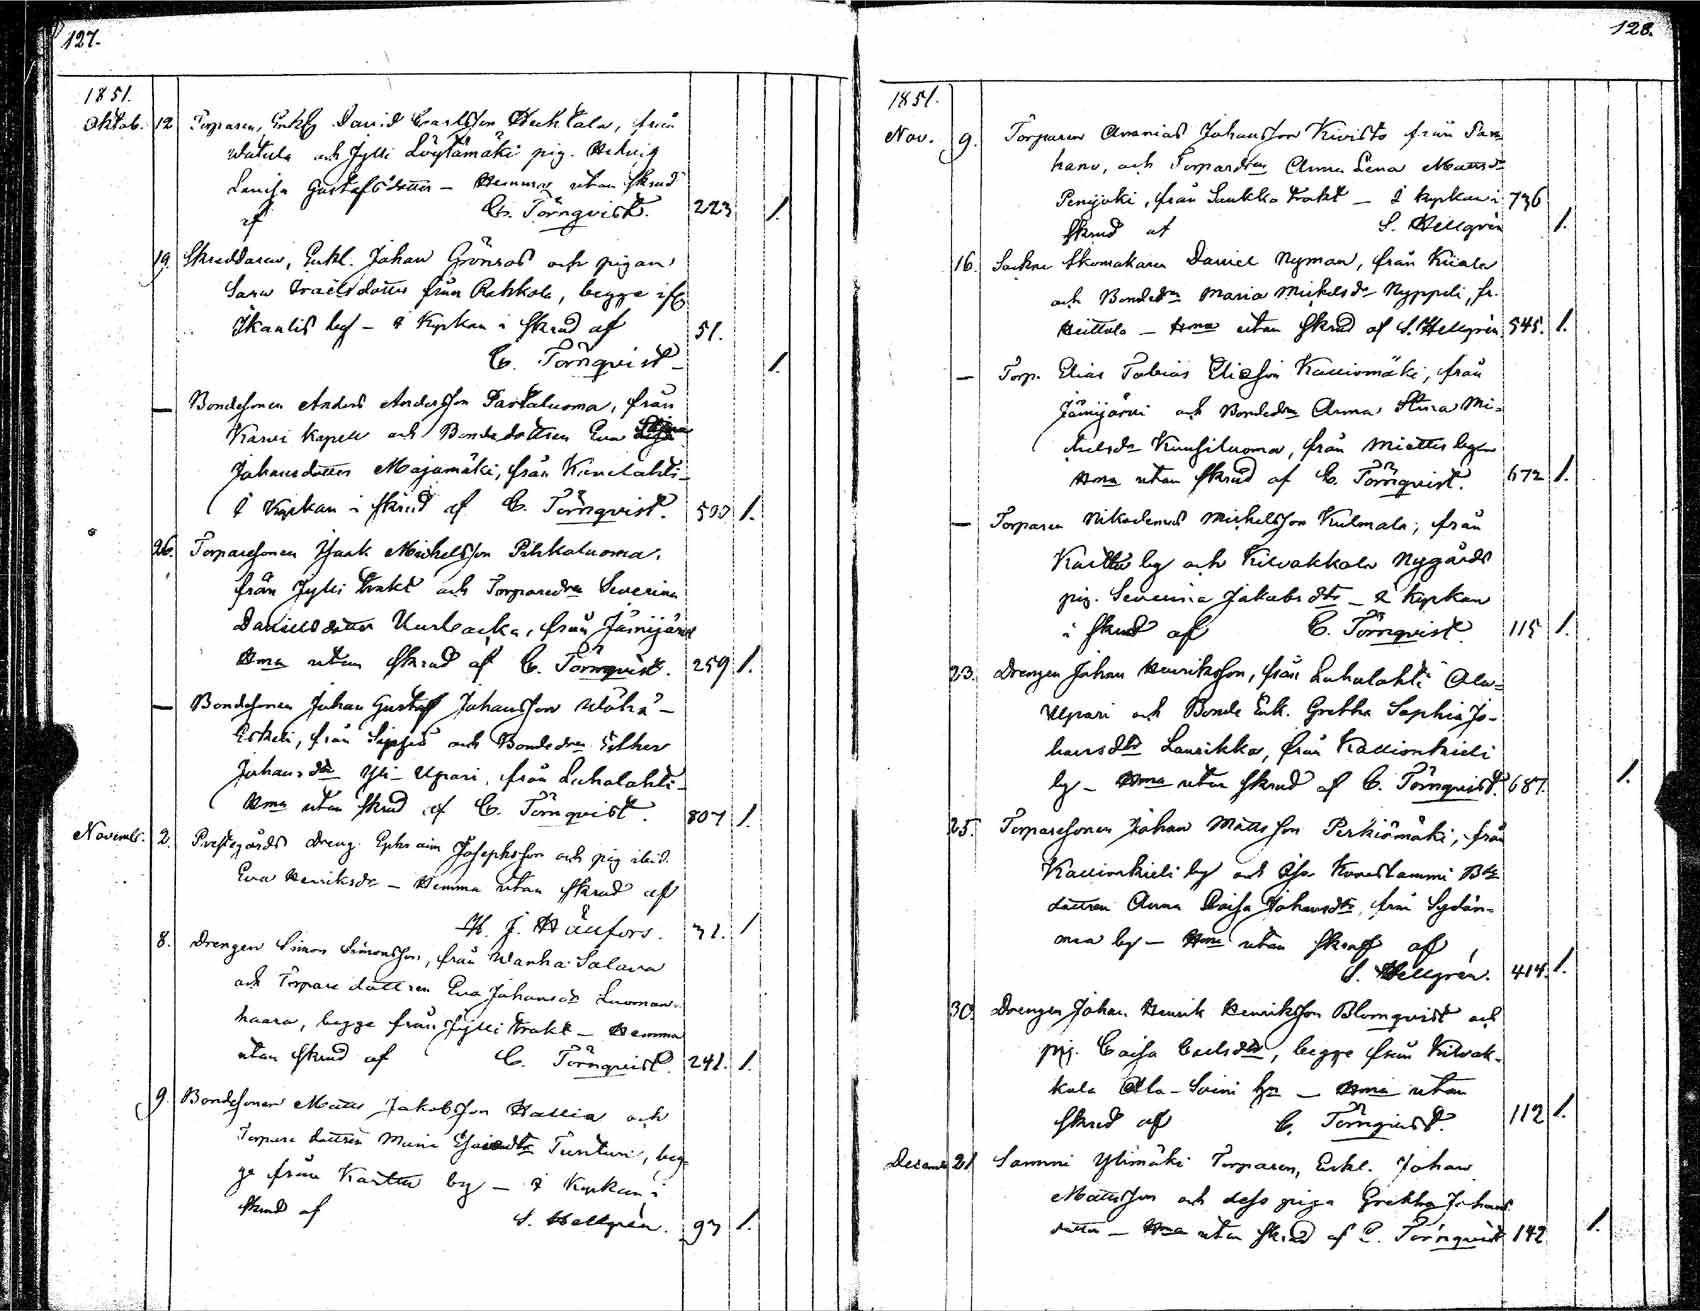 127.
1851.
Oktob. 12 Torparen, Enkl. David Carlsson Huhtala, från
Watula och Jylli Löytämäki pig. Hedvig
Lovisa Gustafsdotter – Hemma utan skrud
af C. Törnqvist. 223 1.
19. Skreddaren, Enkl. Johan Grönros och pigan
Sara Isaelsdotter från Rahkola, begge
Ikalis by – I Kyrkan i skrud af 51.
C. Törnqvist 1.
— Bondesonen Anders Andersson Partaluoma, från
Karvi Kapell och Bondedottren Eva Stina
Johansdotter Majamäki, från Kivilahti –
I Kyrkan i skrud af C. Törnqvist. 1.
26. Torparesonen Isaak Michelsson Pihkaluoma,
från Jylli trakt och Torparedrn Severina
Danielsdotter Uurasa, från Jämijärvi
Hma utan skrud af C. Törnqvist. 259 1.
— Bondesonen Johan Gustaf Johansson Wähä-
Eskeli, från Sipsiö och Bondedrn Esther
Johansdr Yli-Upari, från Luhalahti –
Hma utan skrud af C. Törnqvist. 807 1.
Novemb. 2. Prestegårds dreng Ephraim Josephsson och pig ibid.
Eva Henriksdr – Hemma utan skrud af
H. J. Hänfors. 31. 1
8. Drengen Simon Simonsson, från Wanha Salava
och Torpare dottren Eva Johansdr Luoman-
haara, begge från Jylli trakt – Hemma
utan skrud af C. Törnqvist. 241. 1.
9 Bondesonen Matts Jakobsson Hallia och
Torpare dottren Maria Esaiedtr Tunturi, beg-
ge från Kartu by – I Kyrkan i
skrud af S. Hellgrén. 93 1.
128.
1851.
Nov. 9. Torparen Ananias Johansson Kivistö från Sar-
hanv, och Torpardrn Anna Lena Mattsdr
Penijoki, från Laukko trakt – I kyrkan i 736
skrud af S. Hellgrén 1.
16. Socknes Skomakaren Daniel Nyman, från Kiiala
och Bondedrn Maria Michelsdr Nyppeli, fr.
Heittola – Hma utan skrud af S. Hellgrén. 545. 1.
— Torp. Elias Tobias Eliasson Kalliomäki, från
Jämijärvi och Bondedrn Anna Stina Mi-
chelsdr Kuusiluoma, från Miettis by
Hma utan skrud af C. Törnqvist. 672 1.
— Torparen Nikodemus Michelsson Kulmala, från
Kartu by och Kilvakkala Nygårds
pig. Severina Jakobsdtr – I kyrkan
i skrud af C. Törnqvist 115 1.
23. Drengen Johan Henriksson, från Luhalahti Ala-
Upari och Bonde Enk. Gretha Sophia Jo-
hansdtr Laurikka, från Kallionkieli
by – Hma utan skrud af C. Törnqvist. 687. 1.
25. Torparesonen Johan Mattsson Perkiömäki, från
Kallionkieli by och Konostammi
dottren Anna Caisa Johansdtr, från Sydän-
maa by – Hma utan skrud af
S. Hellgrén. 414. 1.
30. Drengen Johan Henrik Henriksson Blomqvist och
pig. Caisa Carlsdtr, begge från Kilvak-
kala Ala-Soini hn – Hma utan
skrud af C. Törnqvist. 112 1.
Decemb 21 Sammi Ylimäki Torparen, Enkl. Johan
Mattsson och dess piga Gretha Johans
dotter – Hma utan skrud af C. Törnqvist 142 1.